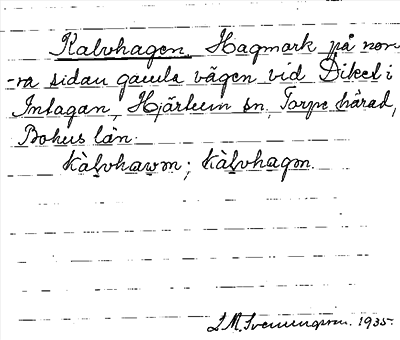 Kalvhagen. Hagmark på nor-
-ra sidan gamla vägen vid Diket i
Intagan, Hjärtum sn, Torpe härad,
Bohus län.
kàlvhawm; kàlvhagm.
L.M. Svenungsson. 1935.